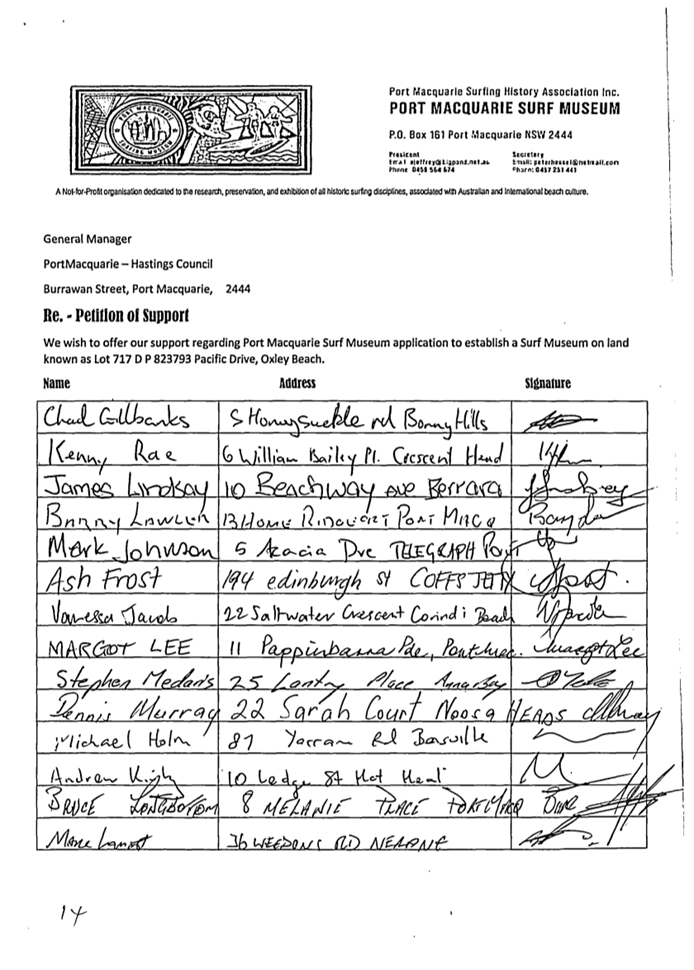 PORT MACQUARIE
SURFING MUSEUM
Port Macquarie Surfing History Association Inc.
PORT MACQUARIE SURF MUSEUM
P.O. Box 161 Port Macquarie NSW 2444
President Secretary
Phone 0458 564 674
A Not-for-Profit organisation dedicated to the research, preservation, and exhibition of all historic surfing disciplines, associated with Australian and International beach culture.
General Manager
PortMacquarie – Hastings Council
Burrawan Street, Port Macquarie, 2444
Re. - Petition of Support
We wish to offer our support regarding Port Macquarie Surf Museum application to establish a Surf Museum on land
known as Lot 717 D P 823793 Pacific Drive, Oxley Beach.
Name Address Signature
Chad Gillbanks 5 Honeysuckle rd Bonny Hills
Kenny Rae 6 William Bailey Pl. Crescent Head
James Lindsay 10 Beachway Ave Berrara
Barry Lawler 13 Home Port Macq
Mark Johnson 5 Acacia Dve TELEGRAPH Point
Ash Frost 194 edinburgh st COFFS JETTY
Vanessa Jacob 22 Saltwater Crescent Corindi Beach
MARGOT LEE 11 Pappinbarra Pde, Port Mac. Margot Lee
Stephen Medaris 25 Place Anna Bay
Dennis Murray 22 Sarah Court Noosa HEADS
Michael Holm 87 Yarram Rd
Andrew 10 Ledge St
BRUCE LONGBOTTOM 8 MELANIE PLACE PORT MACQ
36 WEEDONS RD
14